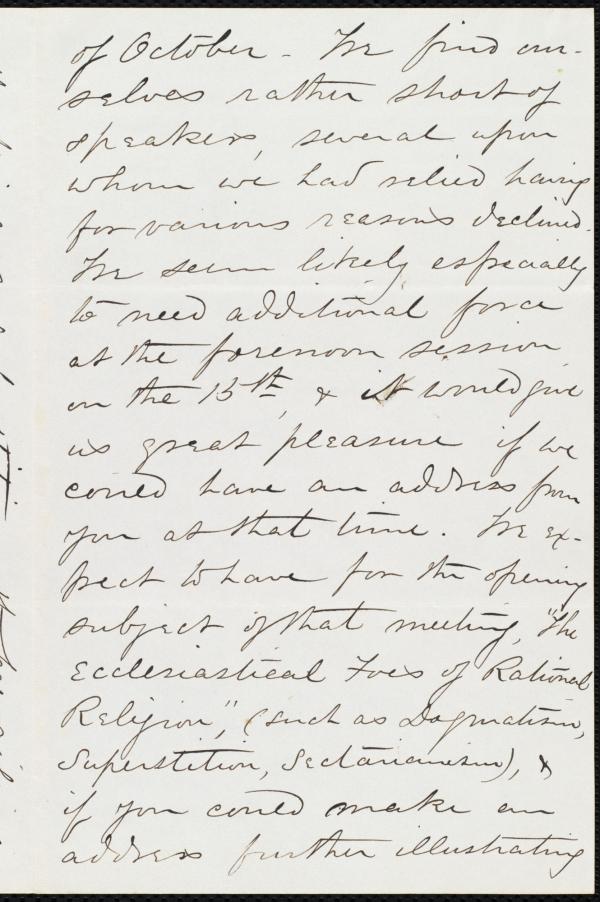 of October - We find our-
selves rather short of
speakers, several upon
whom we had relied having
for various reasons declined.
We seem likely, especially
to need additional force
at the forenoon session
on the 15th, & it would give
us great pleasure if we
could have an address from
you at that time. We ex-
pect to have for the opening
subject of that meeting, "The
Ecclesiastical Foes of Rational
Religion", (such as Dogmatism,
Superstition, Sectarianism), &
if you could make an
address further illustrating